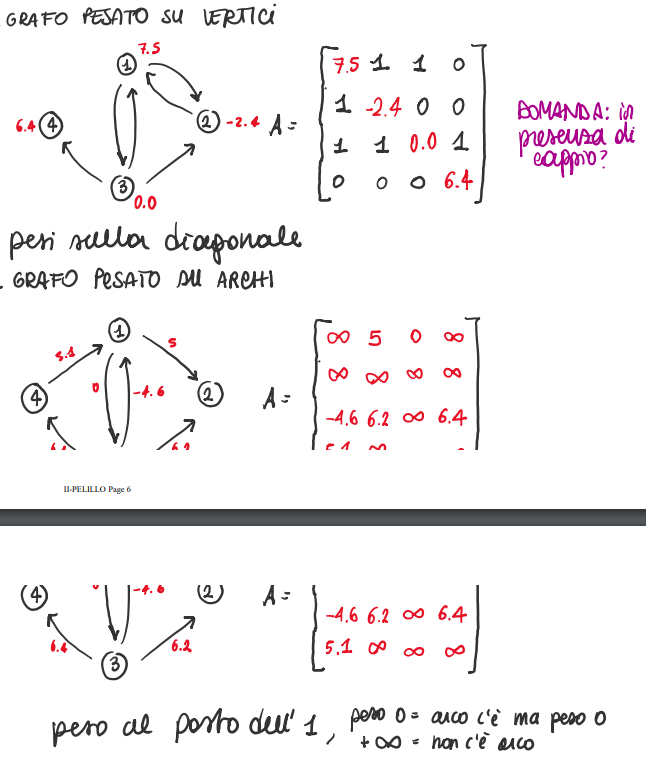 . GRAFO PESATO SU VERTICI
7.5
1
6.4 4
2 -2.4
3
0.0
A =
7.5 1 1 0
1 -2.4 0 0
1 1 0.0 1
0 0 0 6.4
DOMANDA: in
presenza di
cappio?
pesi sulla diagonale
. GRAFO PESATO SU ARCHI
1
5.1
5
0
-4.6
4
2
A =
∞ 5 0 ∞
∞ ∞ ∞ ∞
-4.6 6.2 ∞ 6.4
II-PELILLO Page 6
4
-4.6
2
6.4
6.2
3
A =
-4.6 6.2 ∞ 6.4
5.1 ∞ ∞ ∞
peso al posto dell' 1, peso 0 = arco c'è ma peso 0
+∞ = non c'è arco